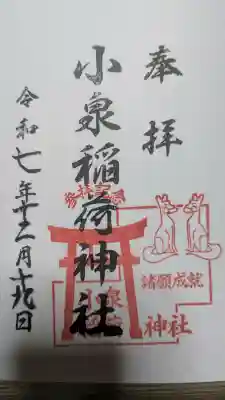 奉拝
小泉稲荷神社
令和七年十二月十九日
参拝記念
諸願成就
小泉
神社